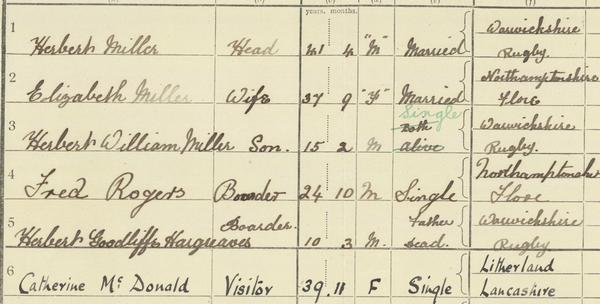 years. months.
1 Herbert Miller Head 41 4 "M" Married Warwickshire
Rugby.
2 Elizabeth Miller Wife 37 9 "F" Married Northamptonshire
Flore
3 Herbert William Miller Son. 15 2 M Single Both alive Warwickshire
Rugby.
4 Fred Rogers Boarder 24 10 M Single Northamptonshire
Flore
5 Herbert Goodliffe Hargreaves Boarder. 10 3 M. Father dead. Warwickshire
Rugby
6 Catherine McDonald Visitor 39 11 F Single Litherland
Lancashire